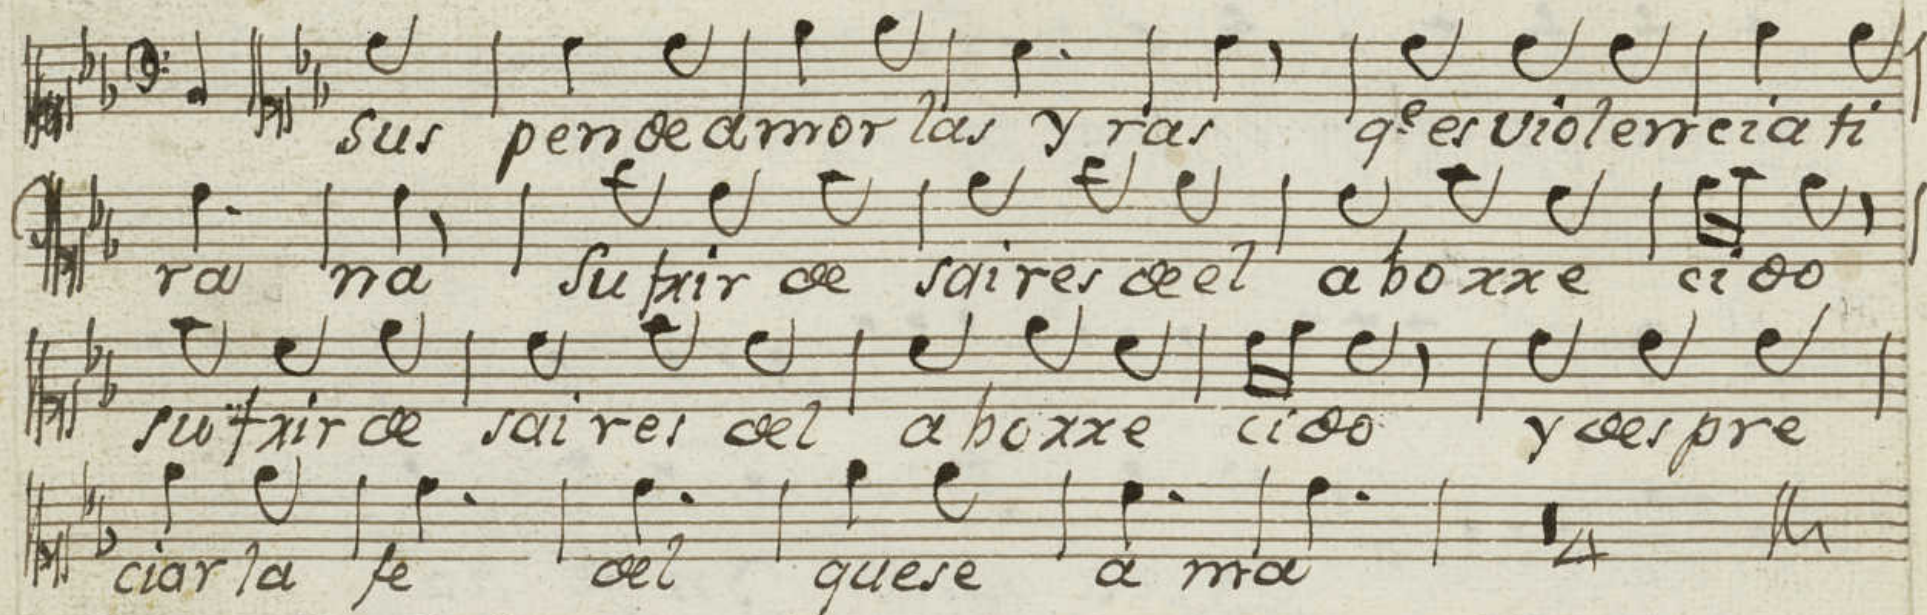 sus pen de amor las y ras qe es violen cia ti
ra na sufrir de saires de el aborre cido
sufrir de saires del aborre cido y des pre
ciar la fe del quese a ma
4